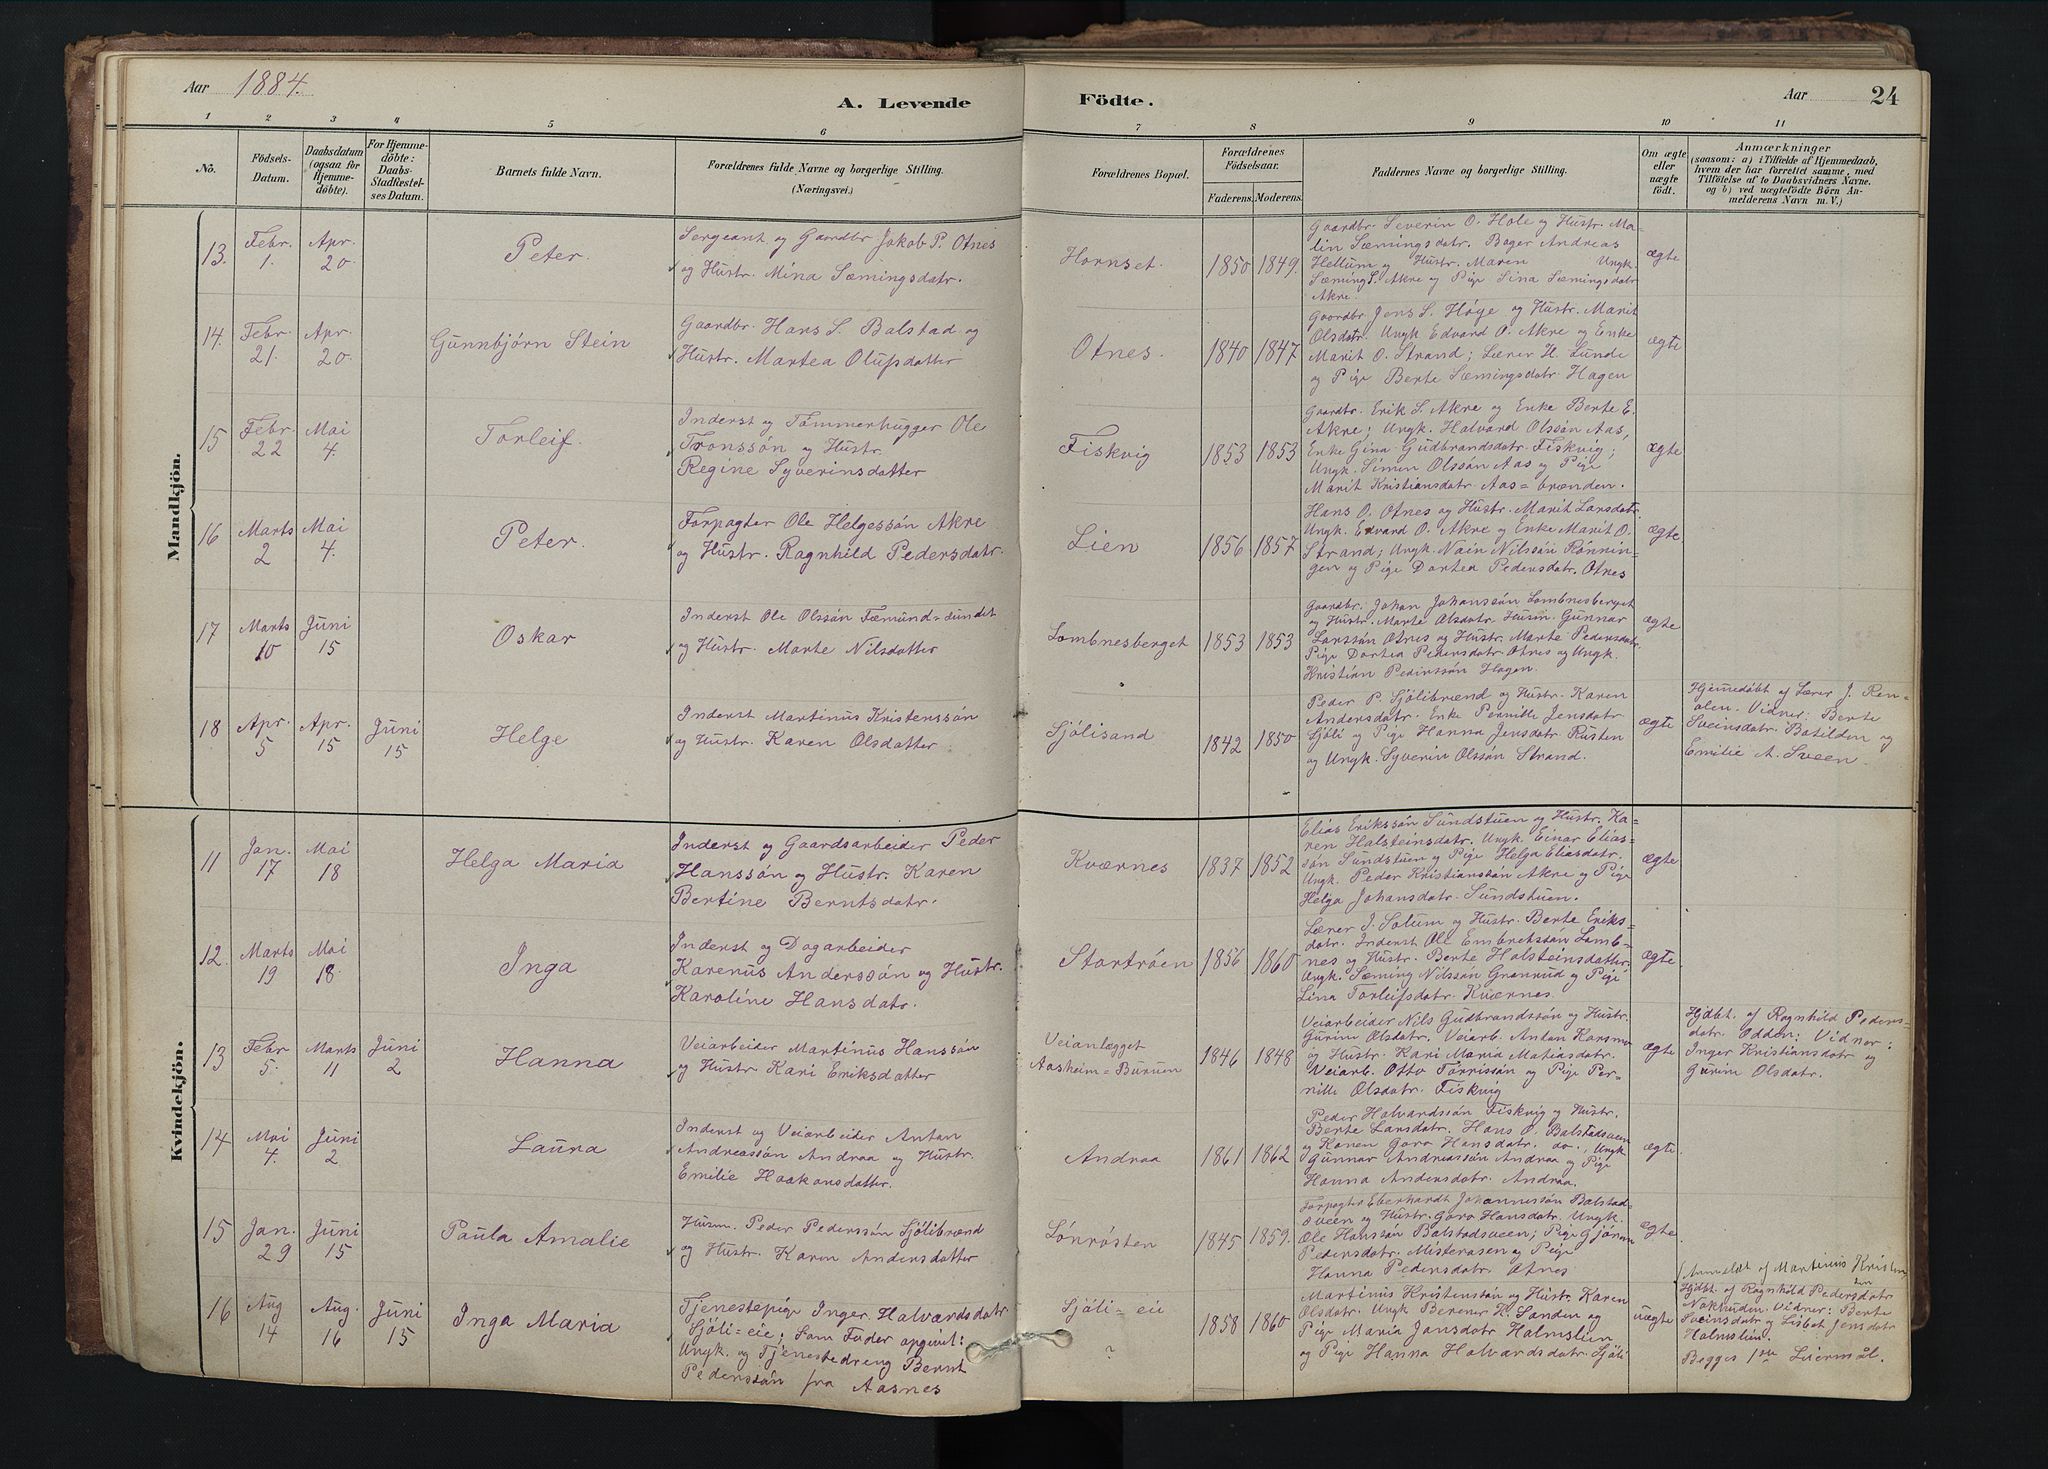 Aar 1884.
A. Levende Födte.
Aar 24
1 2 3 4 5 6 7 8 9 10 11
No.
Födsels-
Datum.
Daabsdatum
(ogsaa for
Hjemme-
döbte).
For Hjemme-
döbte:
Daabs-
Stadfæstel-
ses Datum.
Barnets fulde Navn.
Forældrenes fulde Navne og borgerlige Stilling.
(Næringsvei.)
Forældrenes Bopæl.
Forældrenes
Födselsaar.
Faderens. Moderens.
Faddernes Navne og borgerlige Stilling.
Om ægte
eller
uægte
födt.
Anmærkninger
(saasom: a) i Tilfælde af Hjemmedaab,
hvem der har forrettet samme, med
Tilföielse af to Daabsvidners Navne,
og b) ved uægtefödte Börn An-
melderens Navn m. V.)
Mandkjön.
13. Febr. 1. Apr. 20. Peter.
Sergeant og Gaardbr Jakob P. Otnes
og Hustr. Mina Sæmingsdatr.
Hornset. 1850 1849.
Gaardbr. Severin O. Hole og Hustr. Ma-
lin Sæmingsdatr. Bager Andreas
Hellum og Hustr. Maren Ungk.
Sæming S. Akre og Pige Lina Sæmingsdatr
Akre.
ægte
14. Febr. 21. Apr. 20. Gunnbjørn Stein
Gaardbr. Hans S. Balstad og
Hustr. Martea Olufsdatter
Otnes. 1840 1847
Gaardbr. Jens S. Høye og Hustr. Marit
Olsdatr. Ungk Edvard O. Akre og Enke
Marit O. Strand; Lærer H. Lunde
og Pige Berte Sæmingsdatr. Hagen
ægte
15 Febr. 22 Mai 4. Torleif.
Inderst og Tømmerhugger Ole
Tronssön og Hustr.
Regine Syverinsdatter
Fiskvig 1853 1853
Gaardbr. Erik S. Akre og Enke Berte E.
Akre; Ungk. Halvard Olssön Aas,
Enke Gina Gudbrandsdatr. Fiskvig;
Ungk. Simen Olssön Aas og Pige
Marit Kristiansdatr. Aas=brænden.
ægte
16 Marts 2 Mai 4. Peter.
Forpagter Ole Helgessön Akre
og Hustr. Ragnhild Pedersdatr.
Lien 1856 1857
Hans O. Otnes og Hustr. Marit Larsdatr.
Ungk. Edvard O. Akre og Enke Marit O.
Strand; Ungk. Nain Nilssön Rønnin=
gen og Pige Dortea Pedersdatr. Otnes
ægte.
17 Marts 10 Juni 15 Oskar
Inderst Ole Olssön Fæmund=sundet
og Hustr. Marte Nilsdatter
Lombnesberget 1853 1853
Gaardbr. Johan Johanssön Lombnesberget
og Hustr. Marte Olsdatr. Husm. Gunnar
Larssön Otnes og Hustr. Marte Pedersdatr.
Pige Dortea Pedersdatr. Otnes og Ungk.
Kristian Pederssön Hagen.
ægte
18 Apr. 5 Apr. 15 Juni 15 Helge
Inderst Martinus Kristenssön
og Hustr. Karen Olsdatter
Sjölisand 1842 1850
Peder P. Sjölibrænd og Hustr. Karen
Andersdatr. Enke Pernille Jensdatr
Sjöli og Pige Hanna Jensdatr. Rusten
og Ungk. Syverin Olssön Strand.
ægte
Hjemedøbt af Lærer J. Ren-
olen. Vidner: Berte
Sveinsdatr. Batilden og
Emilie A. Sveen.
Kvindekjön.
11 Jan. 17 Mai 18 Helga Maria
Inderst og Gaardsarbeider Peder
Hanssön og Hustr. Karen
Bertine Berntsdatr.
Kværnes 1837 1852
Elias Erikssön Sundstuen og Hustr. Ka=
ren Halsteinsdatr. Ungk. Einar Elias-
sön Sundstuen og Pige Helga Eliasdatr.
Ungk. Peder Kristianssön Akre og Pige
Helga Johansdatr. Sundstuen.
ægte
12. Marts 19 Mai 18. Inga
Inderst og Dagarbeider
Karenus Anderssön og Hustr.
Karoline Hansdatr.
Startröen 1856 1860
Lærer J. Solum og Hustr. Berte Eriks-
datr. Inderst Ole Embretssön Lomb=
nes og Hustr. Berte Halsteinsdatter.
Ungk. Sæming Nilssön Granrud og Pige
Lina Torleifsdatr. Kværnes.
ægte.
13 Febr 5. Marts 11 Juni 2 Hanna
Veiarbeider Martinus Hanssön
og Hustr Kari Eriksdatter
Veianlægget
Aasheim=Burum 1846 1848
Veiarbeider Nils Gudbrandssön og Hustr.
Gurine Olsdatr. Veiarb. Antan Karsmo
og Hustr. Kari Maria Matiasdatr.
Veiarb. Otto Torrissön og Pige Per-
nille Olsdatr. Fiskvig
ægte
Hjdbt. af Ragnhild Peders-
datr. Odden: Vidner:
Inger Kristiansdatr og
Gurine Olsdatr.
14 Mai 4. Juni 2 Laura
Inderst og Veiarbeider Antan
Andreassön Andraa og Hustr.
Emilie Haakonsdatter.
Andraa 1861 1862
Peder Halvardssön Fiskvig og Hustr.
Berte Larsdatr. Hans O. Balstadsveen
og Konen Goro Hansdatr. do., Ungk
Gunnar Andreassön Andraa og Pige
Hanna Andersdatr. Andraa.
ægte
15 Jan. 29 Juni 15 Paula Amalie
Husm. Peder Pederssön Sjölibrænd
og Hustr. Karen Andersdatter
Lønrøsten 1845 1859.
Forpagter Eberhardt Johannessön Balstad-
sveen og Hustr. Goro Hansdatr. Ungk.
Ole Hanssön Balstadsveen; Pige Gjöran
Pedersdatr. Misterosen og Pige
Hanna Pedersdatr. Otnes
ægte.
16 Aug 14 Aug. 16 Juni 15 Inga Maria
Tjenestepige Inger Halvardsdatr
Sjöli=eie; Som Fader opgivit:
Ungk. og Tjenestedreng Bernt
Pederssön fra Aasnes
Sjöli=eie
? 1858 1860
Martinus Kristenssön og Hustr. Karen
Olsdatr. Ungk Berener H. Sanden og
Pige Maria Jonsdatr Halmslien
og Pige Hanna Halvardsdatr. Sjöli
uægte
(Anmeldt af Martinius Kristen
sön
Hjdbt. af Ragnhild Pedersdatr
Vidner: Berte
Sveinsdatr og Lisbet Jensdatr
Holmslien.
Begges 1ste Leiermål.